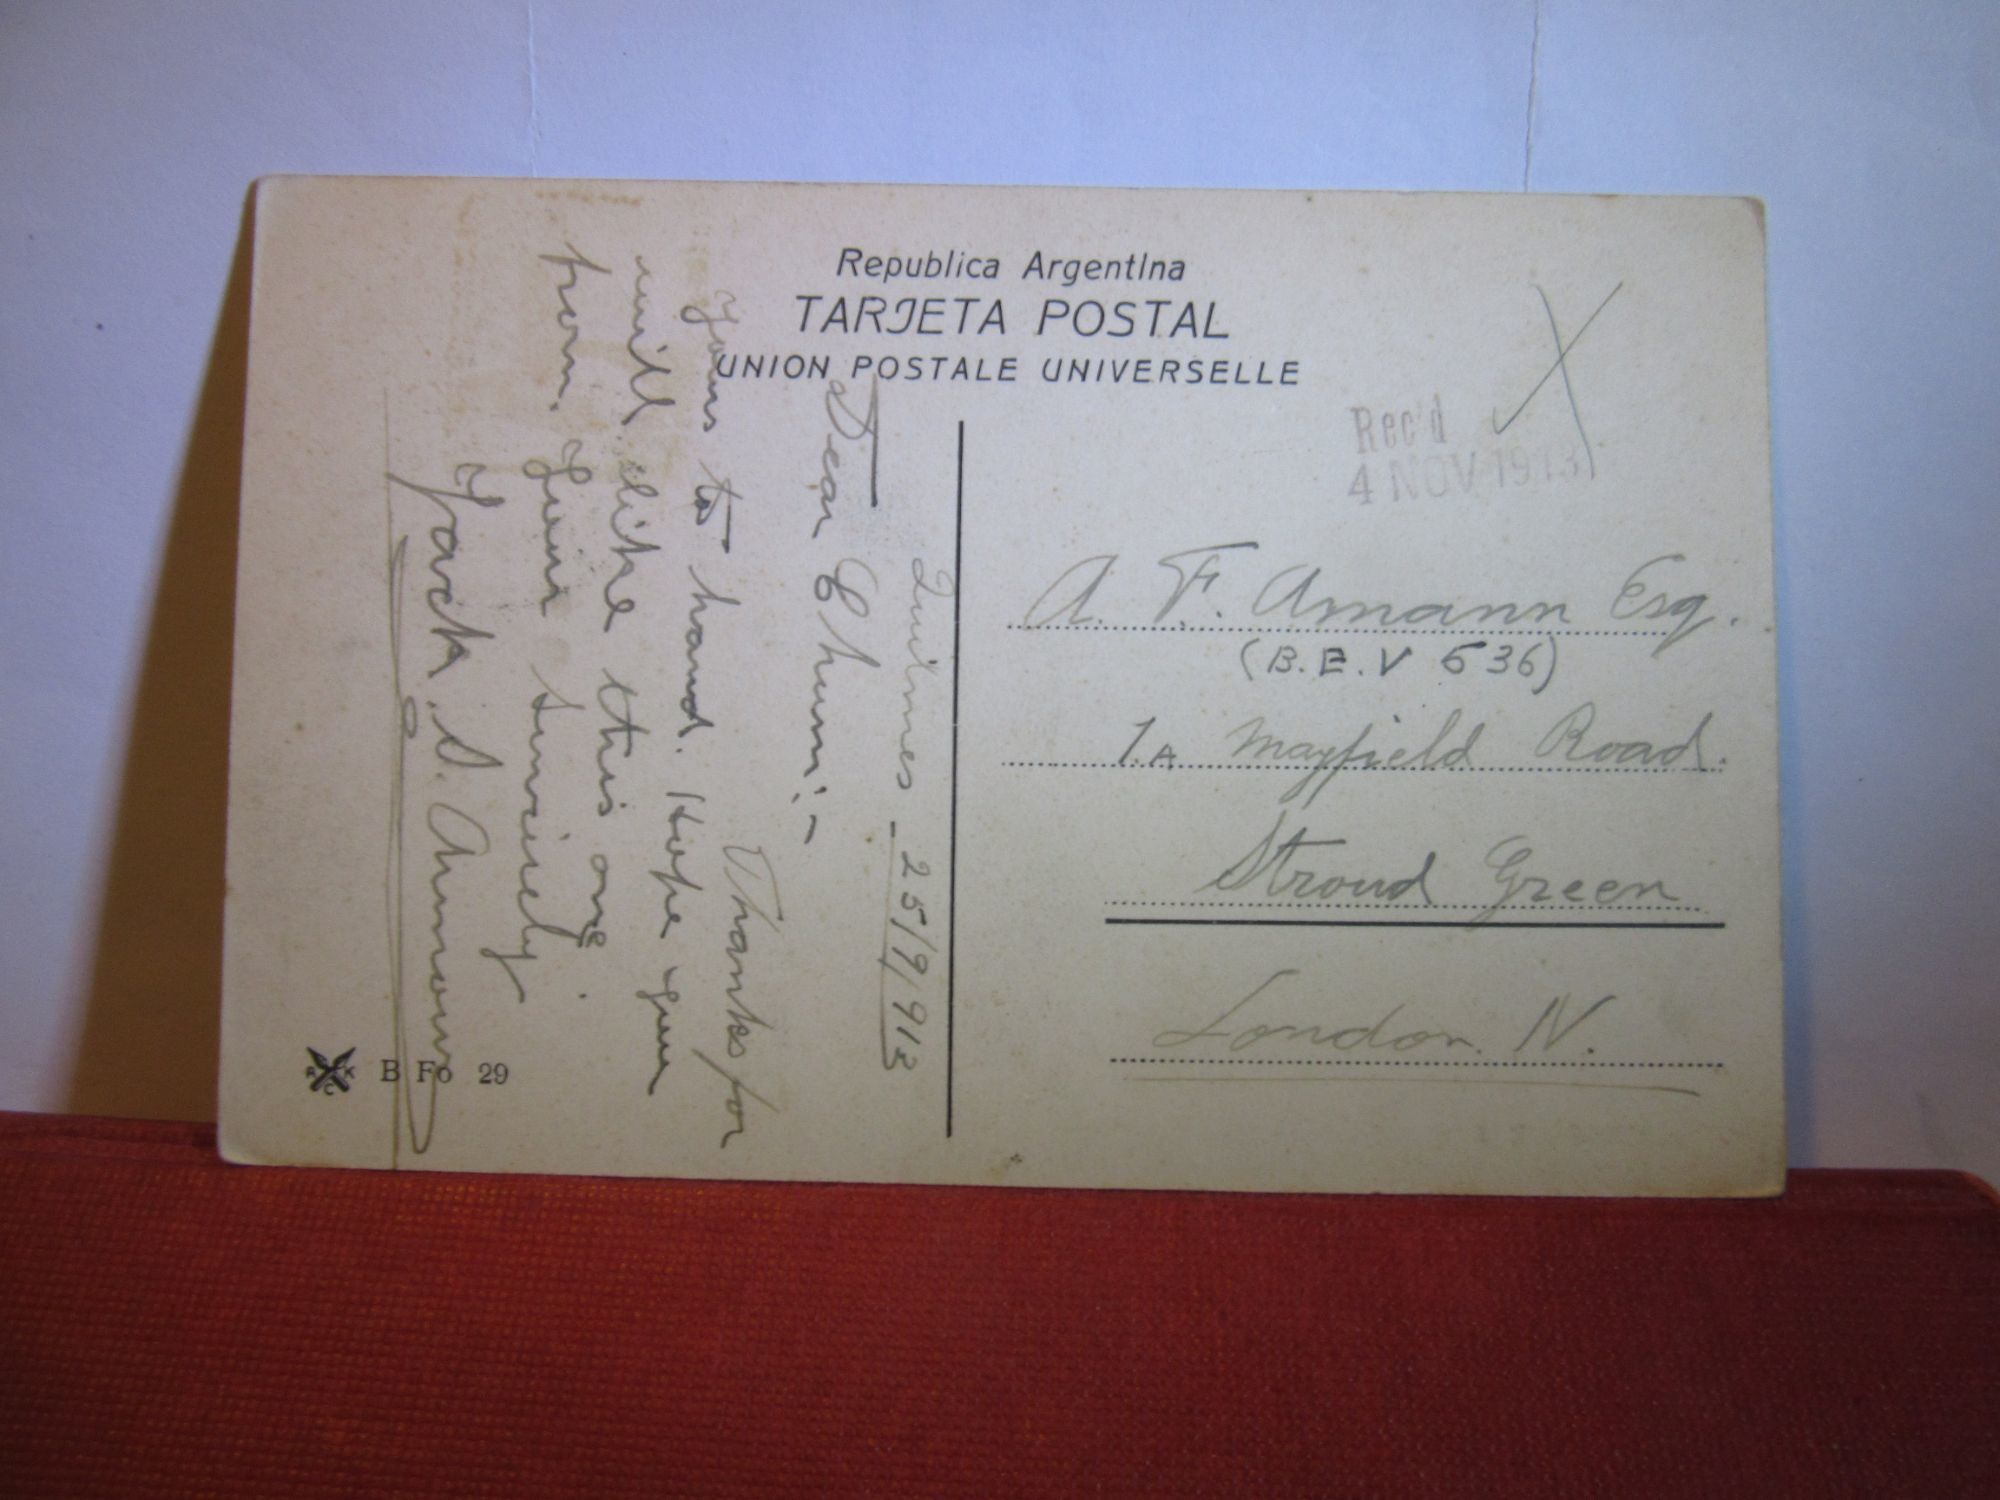 Republica Argentina
TARJETA POSTAL
UNION POSTALE UNIVERSELLE
Rec'd
4 NOV 1913
A. F. Amann Esq.
(B.E.V 536)
1.A Mayfield Road.
Stroud Green
London. N.
Quilmes - 25/9/913
Dear Chum:-
Thanks for
yours to hand. Hope you
will like this one
from. Your Sincerely
Jack. S.
B Fo 29